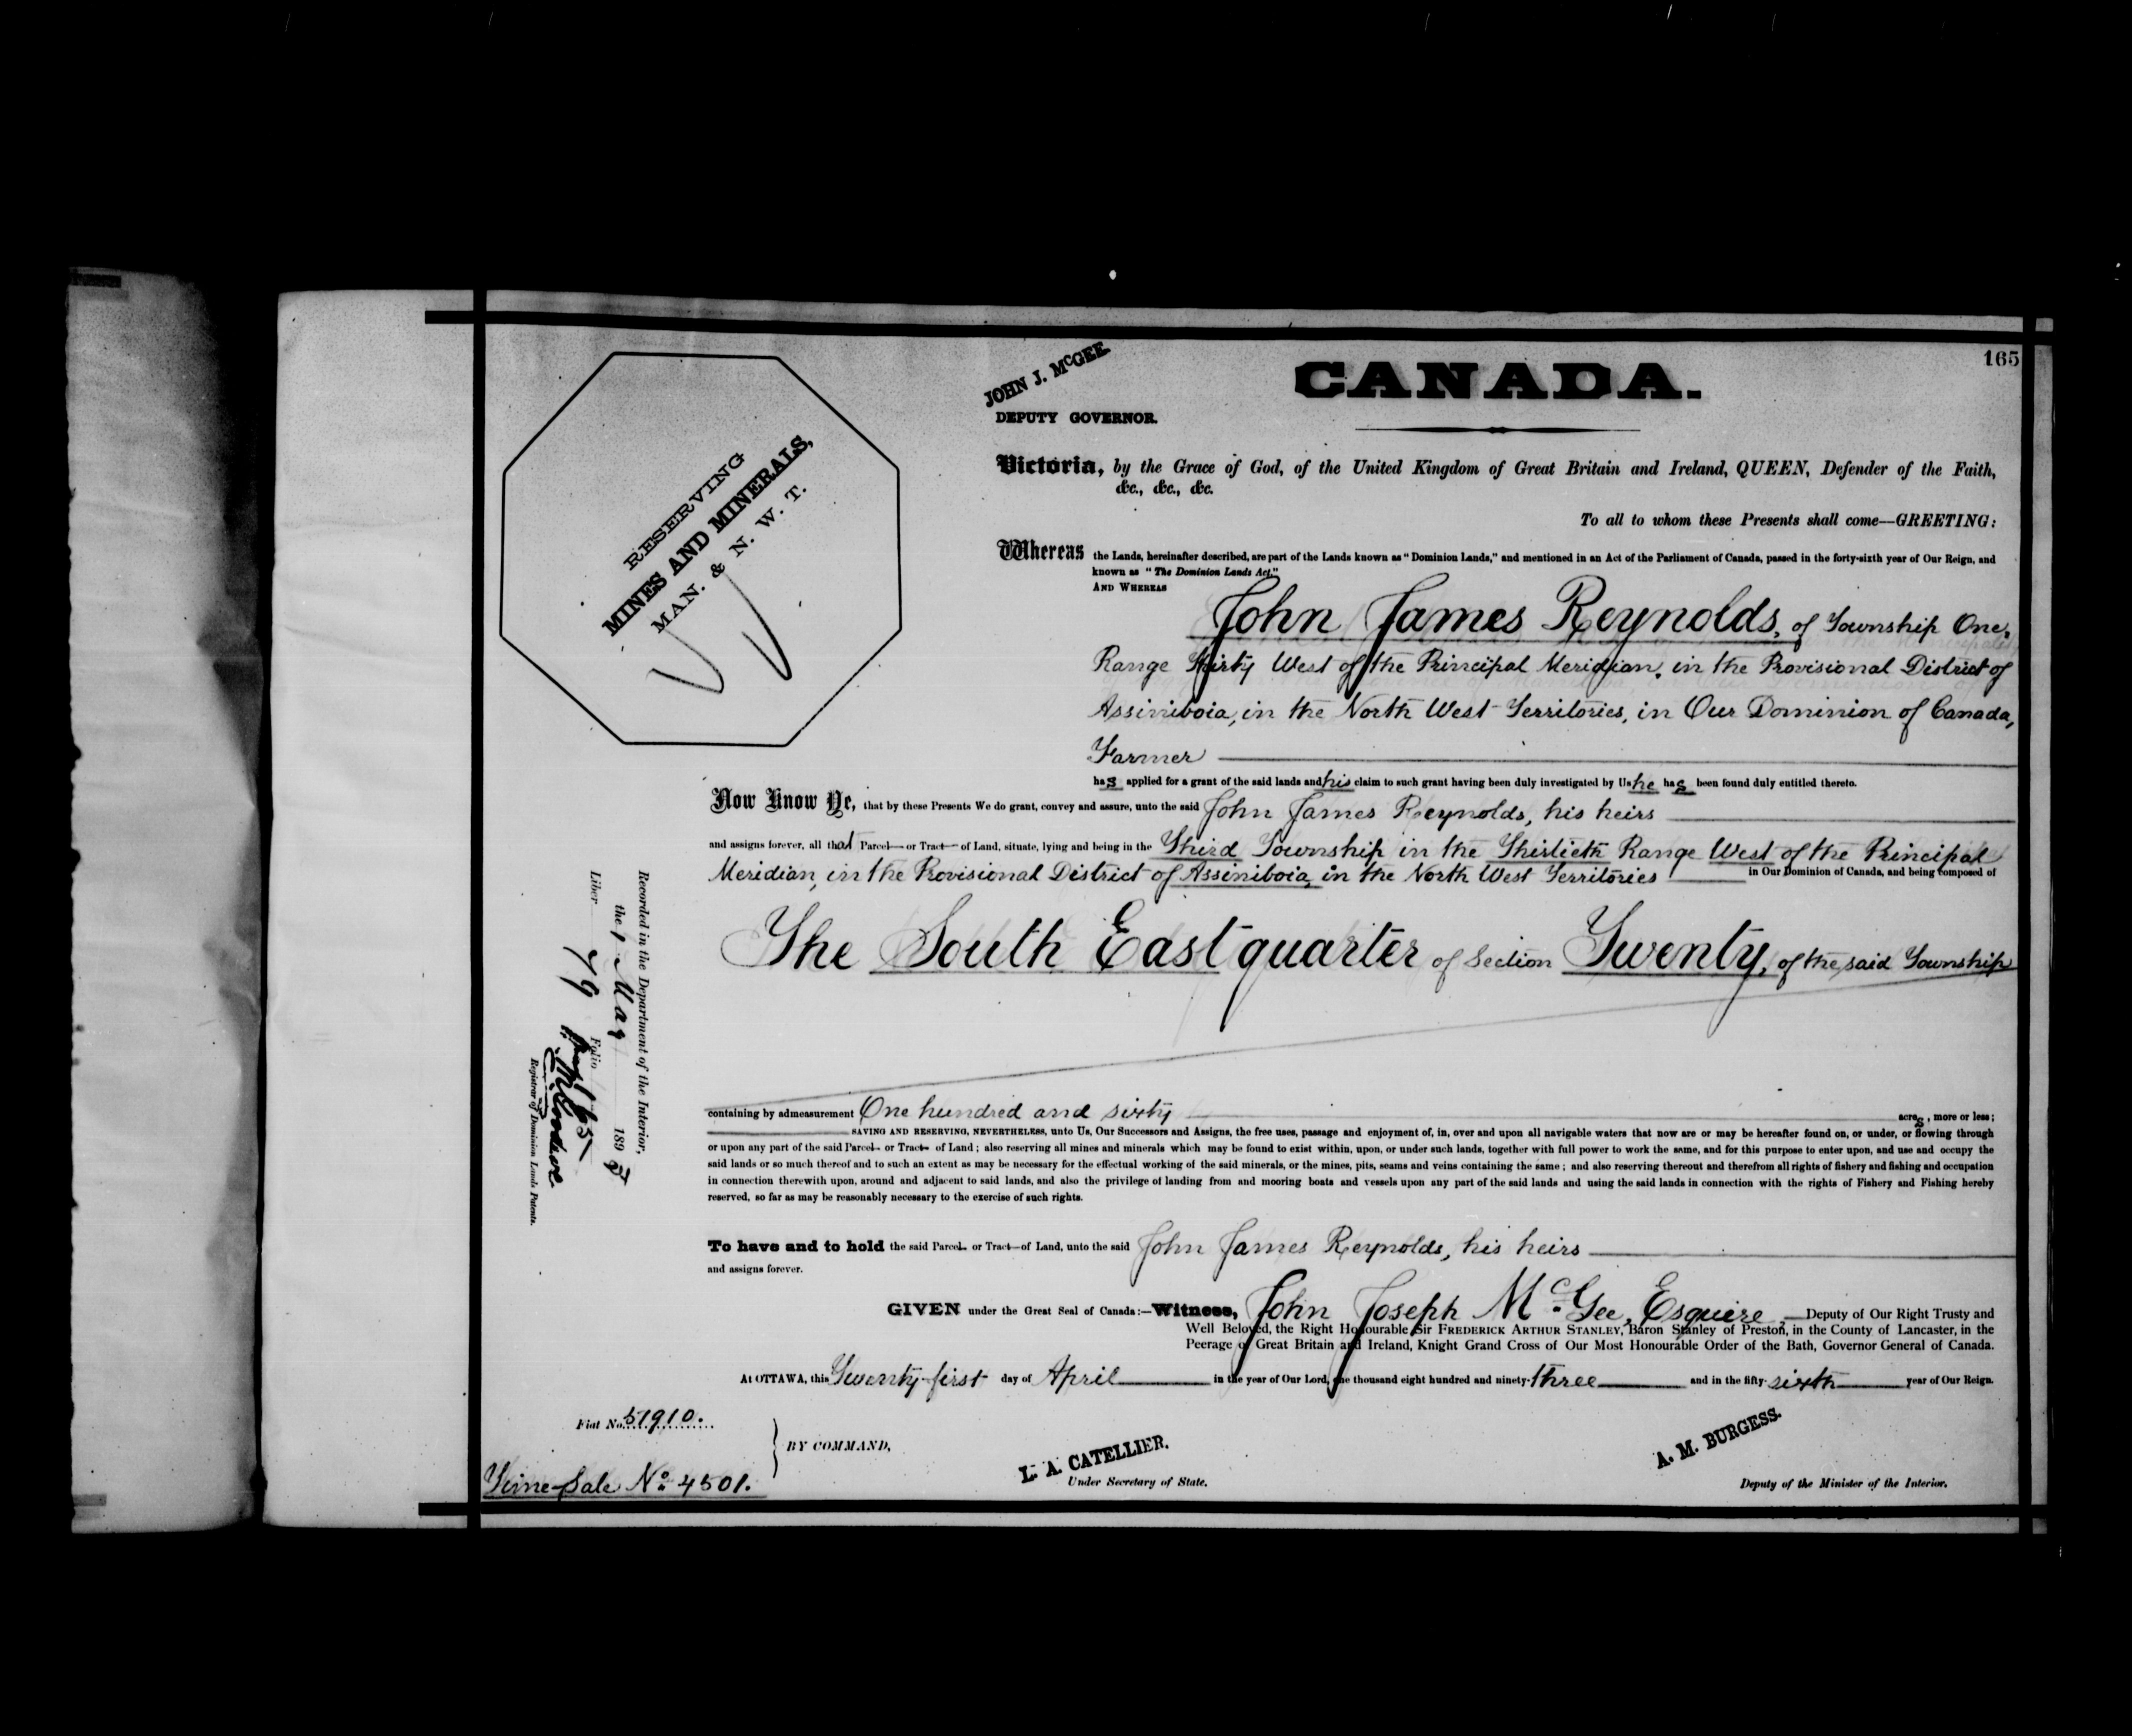 165
JOHN J. McGEE
DEPUTY GOVERNOR.
CANADA.
RESERVING
MINES AND MINERALS,
MAN. & N. W. T.
Victoria, by the Grace of God, of the United Kingdom of Great Britain and Ireland, QUEEN, Defender of the Faith,
&c., &c., &c.
To all to whom these Presents shall come—GREETING:
Whereas the Lands, hereinafter described, are part of the Lands known as "Dominion Lands," and mentioned in an Act of the Parliament of Canada, passed in the forty-sixth year of Our Reign, and
known as "The Dominion Lands Act,"
AND WHEREAS
John James Reynolds, of Township One,
Range Thirty West of the Principal Meridian, in the Provisional District of
Assiniboia, in the North West Territories, in Our Dominion of Canada,
Farmer
has applied for a grant of the said lands and his claim to such grant having been duly investigated by Us he has been found duly entitled thereto.
Now Know Ye, that by these Presents We do grant, convey and assure, unto the said John James Reynolds, his heirs
and assigns forever, all that Parcel or Tract of Land, situate, lying and being in the Third Township in the Thirtieth Range West of the Principal
Meridian, in the Provisional District of Assiniboia, in the North West Territories in Our Dominion of Canada, and being composed of
The South East quarter of Section Twenty, of the said Township
containing by admeasurement One hundred and sixty acres, more or less;
SAVING AND RESERVING, NEVERTHELESS, unto Us, Our Successors and Assigns, the free uses, passage and enjoyment of, in, over and upon all navigable waters that now are or may be hereafter found on, or under, or flowing through
or upon any part of the said Parcel or Tract of Land; also reserving all mines and minerals which may be found to exist within, upon, or under such lands, together with full power to work the same, and for this purpose to enter upon, and use and occupy the
said lands or so much thereof and to such an extent as may be necessary for the effectual working of the said minerals, or the mines, pits, seams and veins containing the same; and also reserving thereout and therefrom all rights of fishery and fishing and occupation
in connection therewith upon, around and adjacent to said lands, and also the privilege of landing from and mooring boats and vessels upon any part of the said lands and using the said lands in connection with the rights of Fishery and Fishing hereby
reserved, so far as may be reasonably necessary to the exercise of such rights.
To have and to hold the said Parcel or Tract of Land, unto the said John James Reynolds, his heirs
and assigns forever.
GIVEN under the Great Seal of Canada:—Witness, John Joseph McGee, Esquire, Deputy of Our Right Trusty and
Well Beloved, the Right Honourable Sir FREDERICK ARTHUR STANLEY, Baron Stanley of Preston, in the County of Lancaster, in the
Peerage of Great Britain and Ireland, Knight Grand Cross of Our Most Honourable Order of the Bath, Governor General of Canada.
At OTTAWA, this Twenty-first day of April in the year of Our Lord, one thousand eight hundred and ninety-three and in the fifty-sixth year of Our Reign.
Fiat No. 51910.
BY COMMAND,
L. A. CATELLIER.
Under Secretary of State.
A. M. BURGESS.
Deputy of the Minister of the Interior.
Time-Sale No. 4501.
Recorded in the Department of the Interior,
the 1 May 1893
Liber 79 Folio 165
Registrar of Dominion Lands Patents.